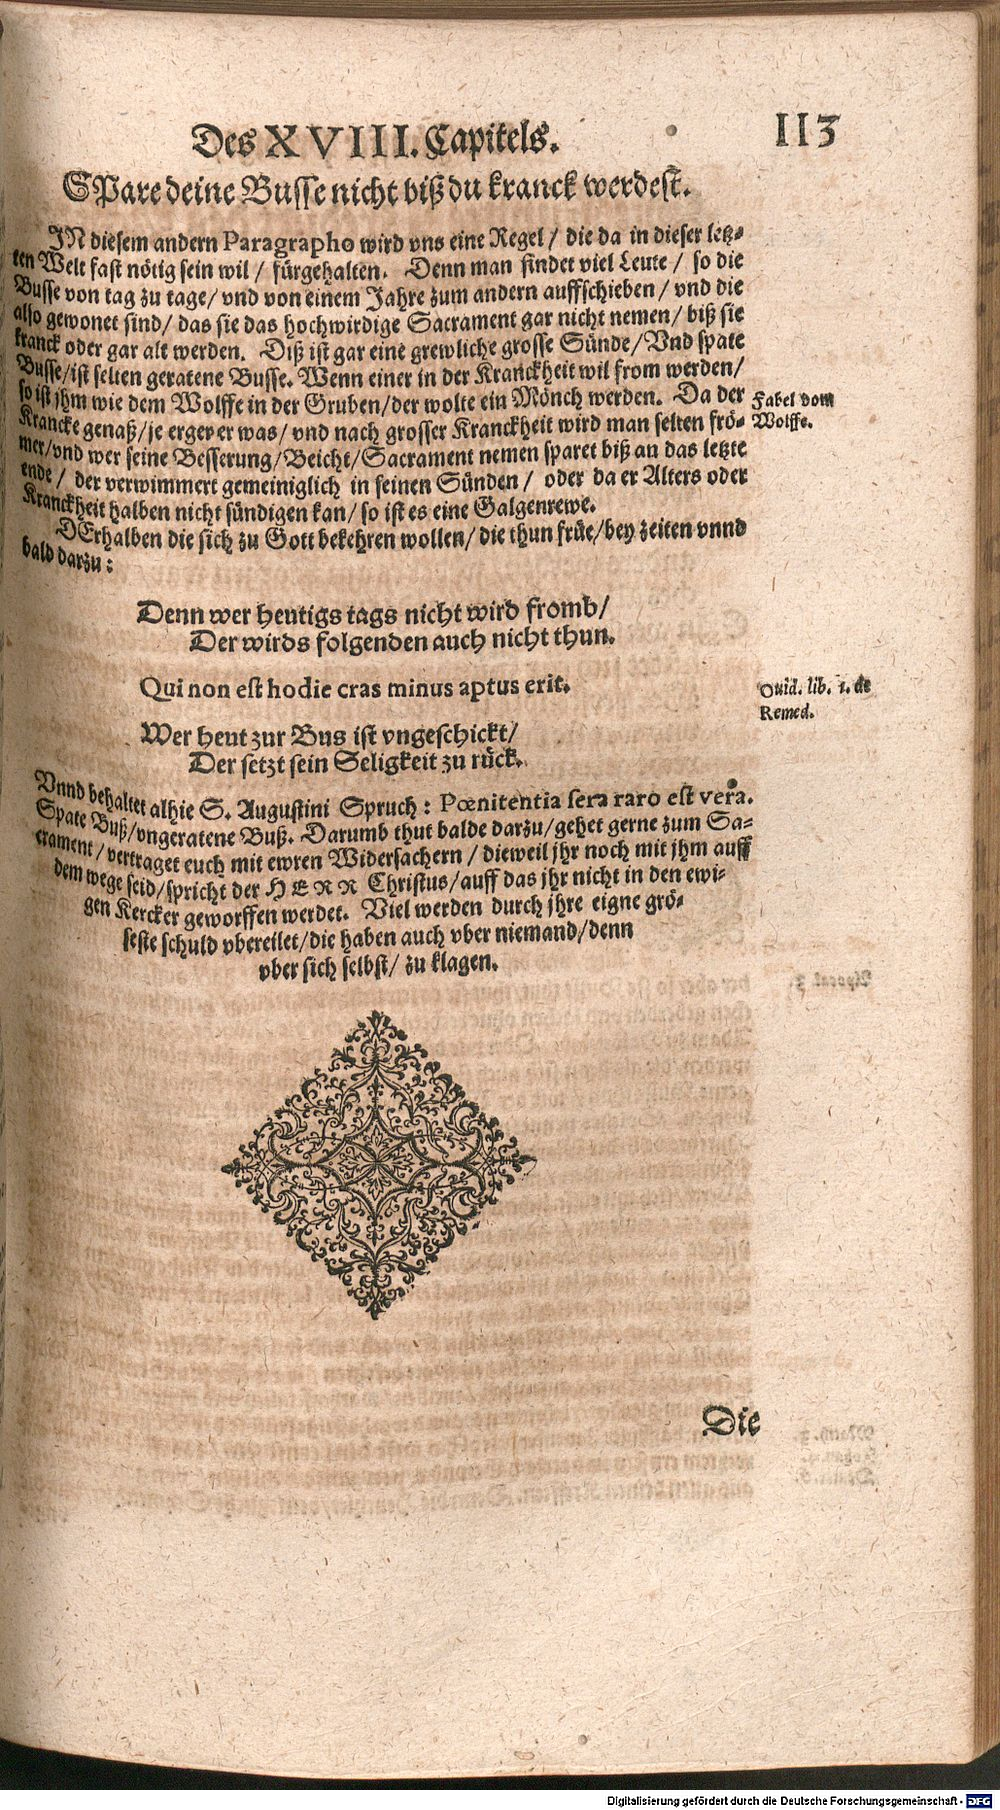 Des XVIII. Capitels. 113
SPare deine Busse nicht biß du kranck werdest.
JN diesem andern Paragrapho wird vns eine Regel / die da in dieser letz-
ten Welt fast nötig sein wil / fürgehalten. Denn man findet viel Leute / so die
Busse von tag zu tage / vnd von einem Jahre zum andern auffschieben / vnd die
also gewonet sind / das sie das hochwirdige Sacrament gar nicht nemen / biß sie
kranck oder gar alt werden. Diß ist gar eine grewliche grosse Sünde / Vnd spate
Busse / ist selten geratene Busse. Wenn einer in der Kranckheit wil from werden /
so ist jhm wie dem Wolffe in der Gruben / der wolte ein Mönch werden. Da der
Krancke genaß / je erger er was / vnd nach grosser Kranckheit wird man selten frö-
mer / vnd wer seine Besserung / Beicht / Sacrament nemen sparet biß an das letzte
ende / der verwimmert gemeiniglich in seinen Sünden / oder da er Alters oder
Kranckheit halben nicht sündigen kan / so ist es eine Galgenrewe.
Fabel vom
Wolffe.
DErhalben die sich zu Gott bekehren wollen / die thun früe / bey zeiten vnnd
bald darzu :
Denn wer heutigs tags nicht wird fromb /
Der wirds folgenden auch nicht thun.
Qui non est hodie cras minus aptus erit.
Ouid. lib. 1. de
Remed.
Wer heut zur Bus ist vngeschickt /
Der setzt sein Seligkeit zu rück.
Vnnd behaltet alhie S. Augustini Spruch : Pœnitentia sera raro est vera.
Spate Buß / vngeratene Buß. Darumb thut balde darzu / gehet gerne zum Sa-
crament / vertraget euch mit ewren Widersachern / dieweil jhr noch mit jhm auff
dem wege seid / spricht der HERR Christus / auff das jhr nicht in den ewi-
gen Kercker geworffen werdet. Viel werden durch jhre eigne grö-
seste schuld vbereilet / die haben auch vber niemand / denn
vber sich selbst / zu klagen.
Die
Digitalisierung gefördert durch die Deutsche Forschungsgemeinschaft - DFG